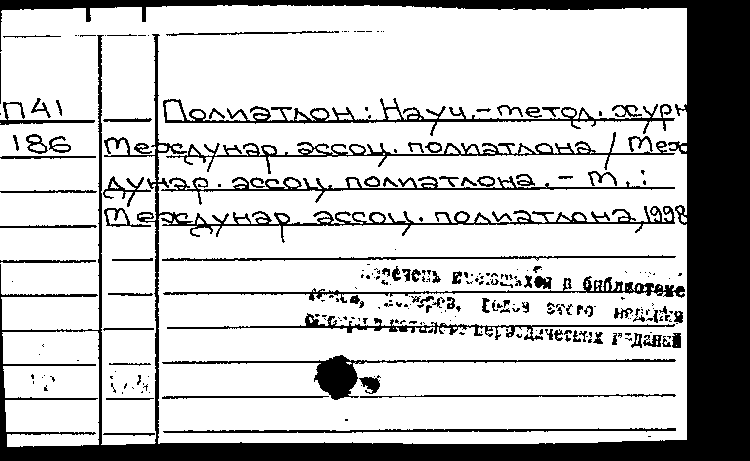 П41 Полиатлон: Науч.-метод. журн
186 Междунар. ассоц. полиатлона / Меж
дунар. ассоц. полиатлона. - М.:
Междунар. ассоц. полиатлона, 1998
Перечень имеющихся в библиотеке
томов, номеров, годов этого издания
смотри в каталоге периодических изданий